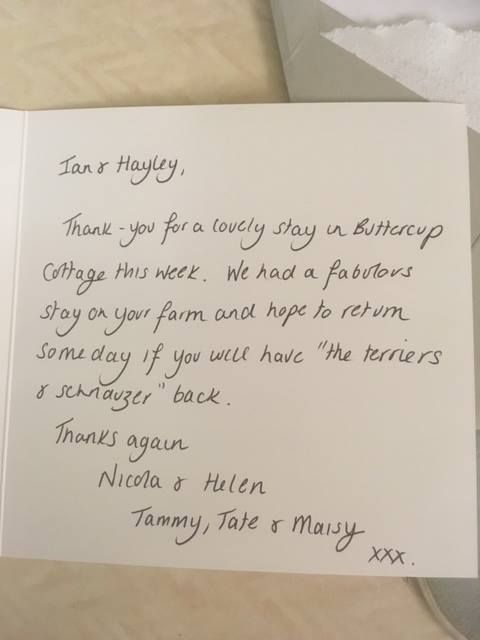 Ian & Hayley,
Thank-you for a lovely stay in Buttercup
Cottage this week. We had a fabulous
stay on your farm and hope to return
someday if you will have "the terriers
& schnauzer" back.
Thanks again
Nicola & Helen
Tammy, Tate & Maisy
xxx.